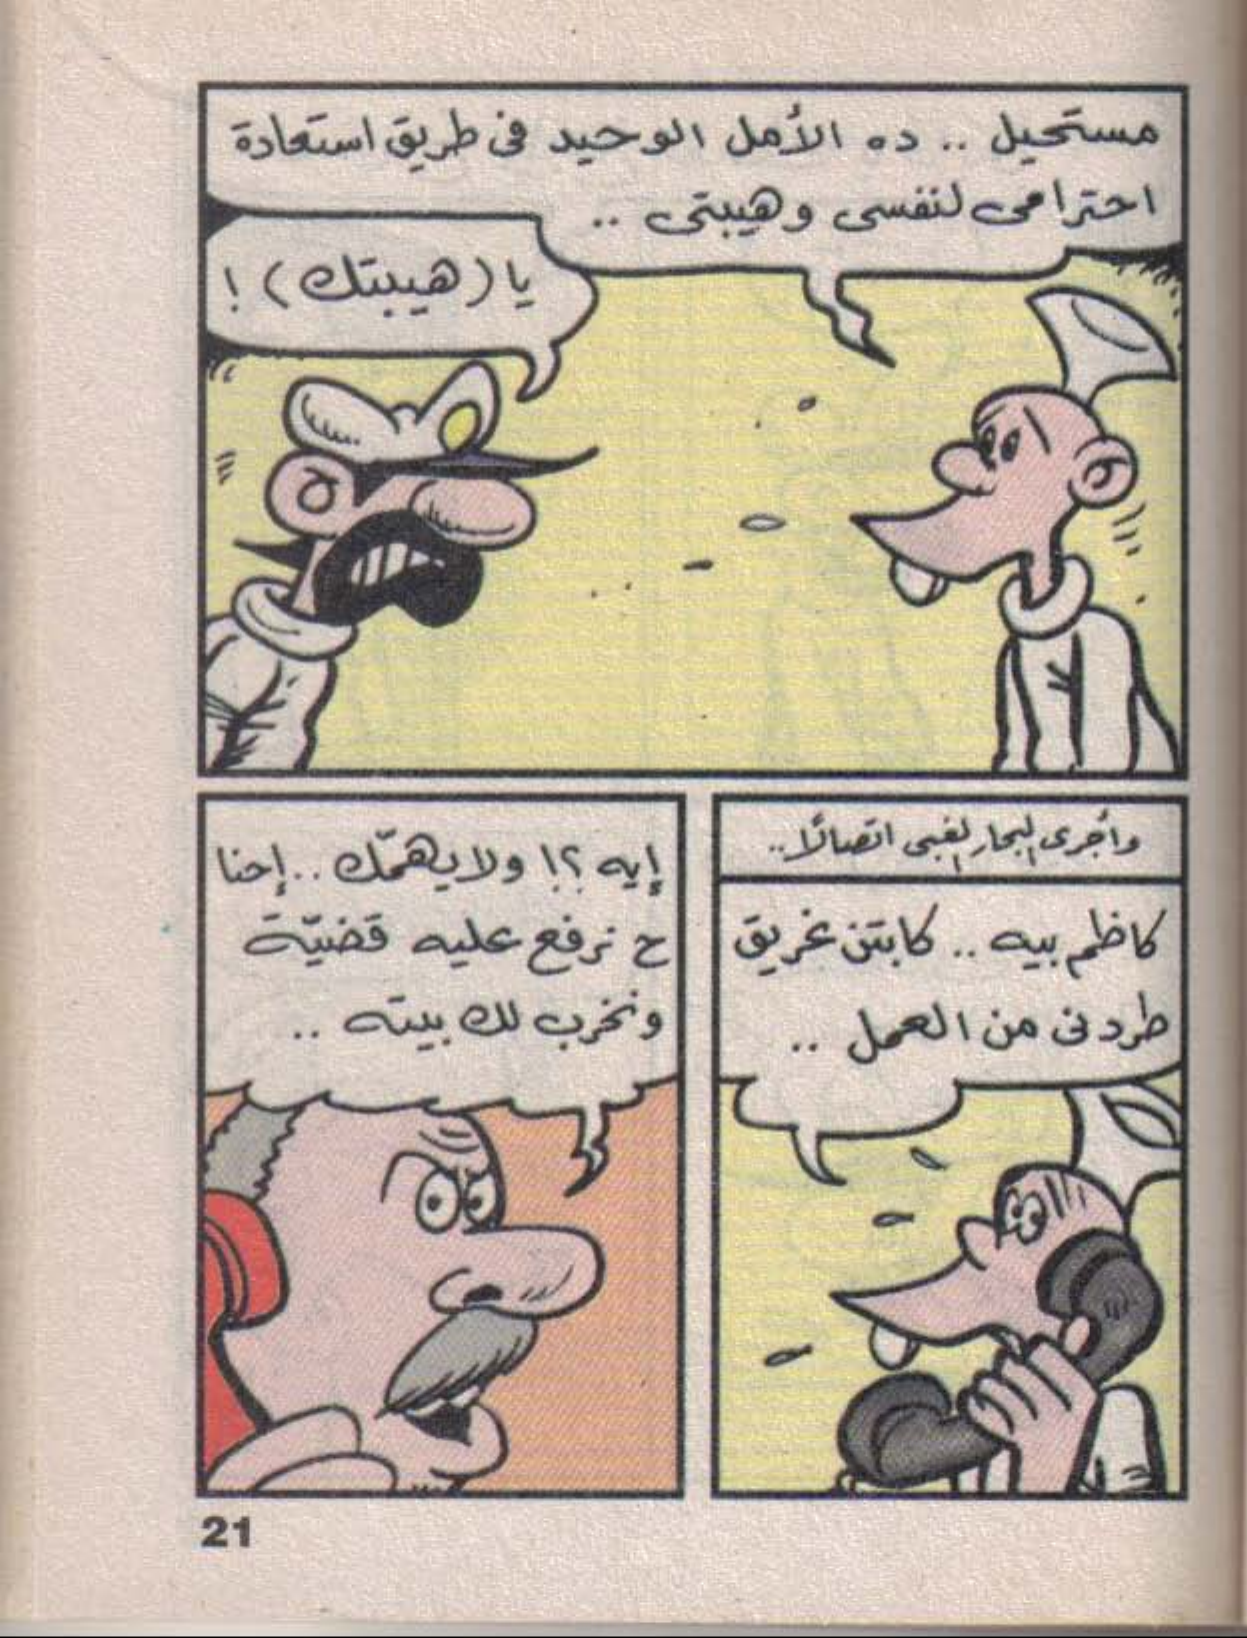 مستحيل .. ده الأمل الوحيد فى طريق استعادة
احترامى لنفسى وهيبتى ..
يا (هيبتك) !
وأجرى البحار الغبى اتصالًا..
كاظم بيه .. كابتن غريق
طردنى من العمل ..
إيه ؟! ولا يهمّك .. إحنا
ح نرفع عليه قضيّة
ونخرب لك بيته ..
21